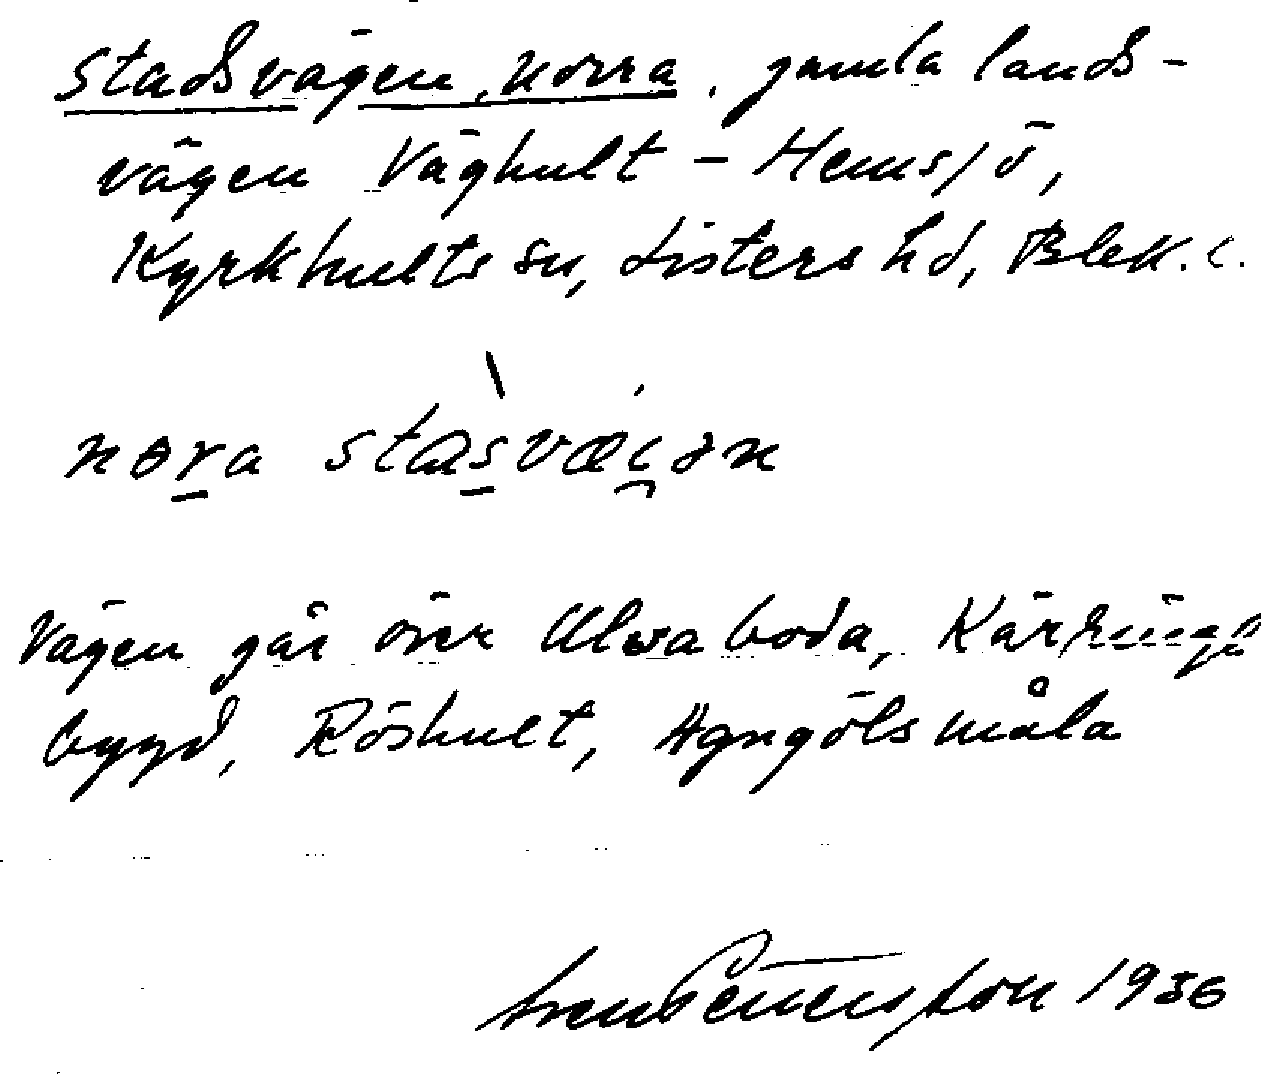 Stadsvägen, norra, gamla lands-
vägen Väghult – Hemsjö,
Kyrkhults sn, Listers hd, Blek. l.
nora stasvæiən
Vägen går över Ulvsaboda, Kärrings
bygd, Röshult, Agngölsmåla
Sven Pettersson 1936